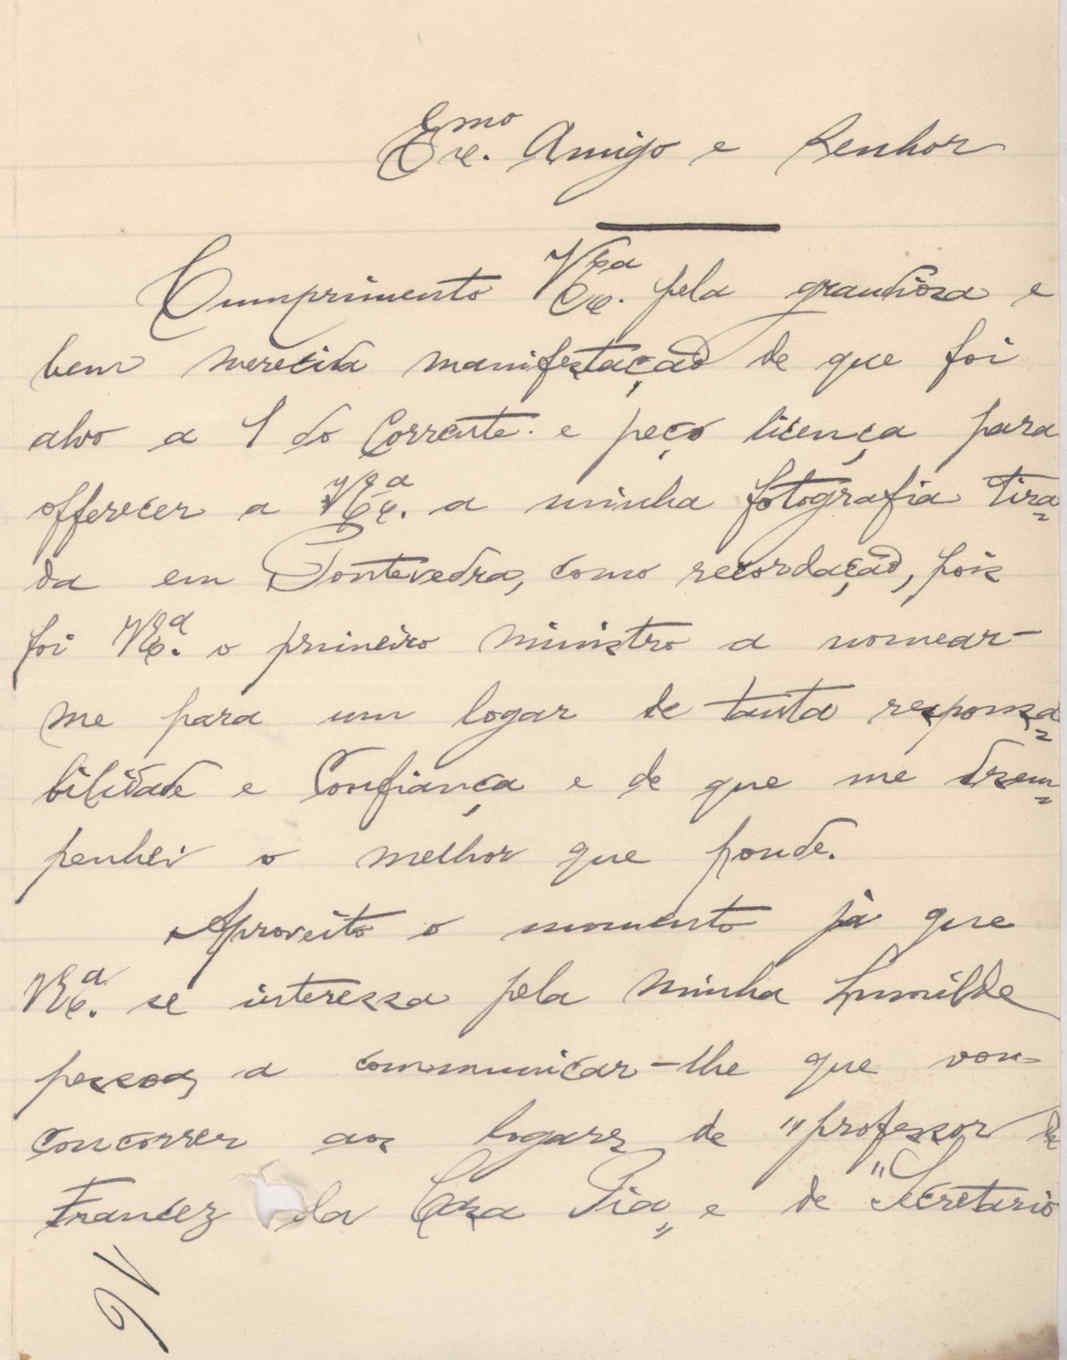 Exmo. Amigo e Senhor
Cumprimento V Exa. pela grandiosa e
bem merecida manifestação de que foi
alvo a 1 do Corrente. e peço licença para
offerecer a V Exa. a minha fotografia tira=
da em Pontevedra, como recordação, pois
foi V Exa. o primeiro ministro a nomear-
me para um logar de tanta responsa=
bilidade e Confiança e de que me desem=
penhei o melhor que poude.
Aproveito o momento já que
V Exa. se interessa pela minha humilde
pessoa, a communicar-lhe que vou
concorrer aos logares de "professor de
Francez da Casa Pia" e de "Secretario